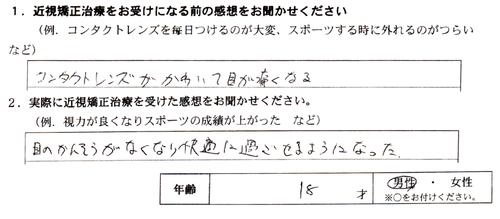 1．近視矯正治療をお受けになる前の感想をお聞かせください
（例．コンタクトレンズを毎日つけるのが大変、スポーツする時に外れるのがつらい
など）
コンタクトレンズが かわいて目が痛くなる
2．実際に近視矯正治療を受けた感想をお聞かせください。
（例．視力が良くなりスポーツの成績が上がった　など）
目のかんそうがなくなり快適に過ごせるようになった。
年齢　18　才　男性　・　女性
※○をお付けください。